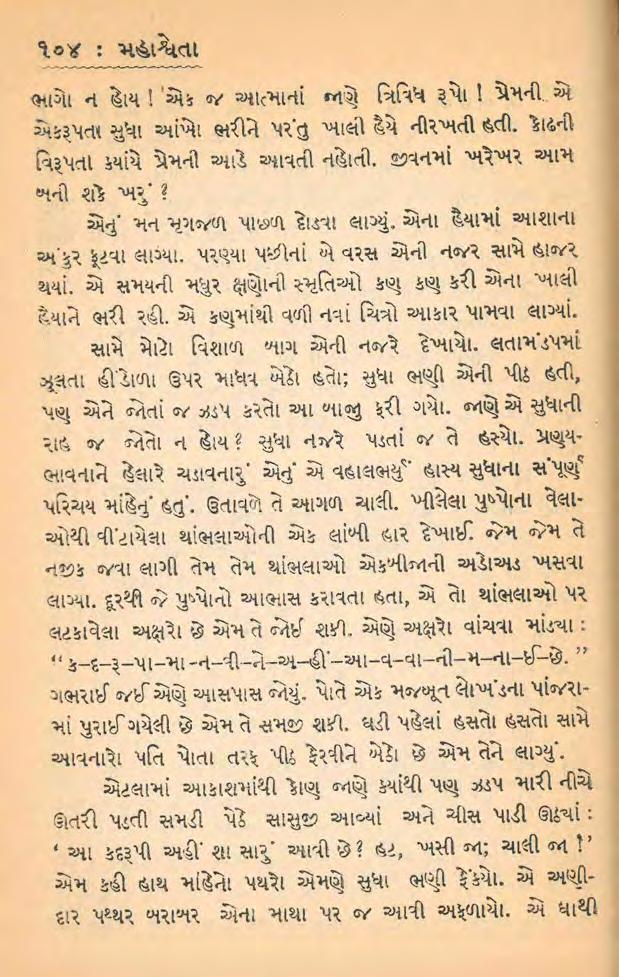 ૧૦૪ : મહાશ્વેતા
ભાગો ન હોય ! 'એક જ આત્માનાં જાણે ત્રિવિધ રૂપો ! પ્રેમની એ
એકરૂપતા સુધા આંખો ભરીને પરંતુ ખાલી હૈયે નીરખતી હતી. કોઢની
વિરૂપતા કયાંયે પ્રેમની આડે આવતી નહોતી. જીવનમાં ખરેખર આમ
બની શકે ખરું ?
એનું મન મૃગજળ પાછળ દોડવા લાગ્યું. એના હૈયામાં આશાના
અંકુર ફૂટવા લાગ્યા. પરણ્યા પછીનાં બે વરસ એની નજર સામે હાજર
થયાં. એ સમયની મધુર ક્ષણોની સ્મૃતિઓ કણ કણ કરી એના ખાલી
હૈયાને ભરી રહી. એ કણમાંથી વળી નવાં ચિત્રો આકાર પામવા લાગ્યાં.
સામે મોટો વિશાળ બાગ એની નજરે દેખાયો. લતામંડપમાં
ઝૂલતા હીંડોળા ઉપર માધવ બેઠો હતો; સુધા ભણી એની પીઠ હતી,
પણ એને જોતાં જ ઝડપ કરતો આ બાજુ ફરી ગયો. જાણે એ સુધાની
રાહ જ જોતો ન હોય ? સુધા નજરે પડતાં જ તે હસ્યો. પ્રણય-
ભાવનાને હેલારે ચડાવનારું એનું એ વહાલભર્યું હાસ્ય સુધાના સંપૂર્ણ
પરિચય માંહેનું હતું. ઉતાવળે તે આગળ ચાલી. ખીલેલા પુષ્પોના વેલા-
ઓથી વીંટાયેલા થાંભલાઓની એક લાંબી હાર દેખાઈ. જેમ જેમ તે
નજીક જવા લાગી તેમ તેમ થાંભલાઓ એકબીજાની અડોઅડ ખસવા
લાગ્યા. દૂરથી જે પુષ્પોનો આભાસ કરાવતા હતા, એ તો થાંભલાઓ પર
લટકાવેલા અક્ષરો છે એમ તે જોઈ શકી. એણે અક્ષરો વાંચવા માંડયા :
“ ક–દ–રૂ–પા–મા–ન–વી–ને–અ–હીં–આ–વ–વા–ની–મ–ના–ઈ–છે. ”
ગભરાઈ જઈ એણે આસપાસ જોયું. પોતે એક મજબૂત લોખંડના પાંજરા-
માં પુરાઈ ગયેલી છે એમ તે સમજી શકી. ઘડી પહેલાં હસતો હસતો સામે
આવનારો પતિ પોતા તરફ પીઠ ફેરવીને બેઠો છે એમ તેને લાગ્યું.
એટલામાં આકાશમાંથી કોણ જાણે કયાંથી પણ ઝડપ મારી નીચે
ઊતરી પડતી સમડી પેઠે સાસુજી આવ્યાં અને ચીસ પાડી ઊઠયાં :
‘ આ કદરૂપી અહીં શા સારું આવી છે ? હટ, ખસી જા; ચાલી જા !’
એમ કહી હાથ માંહેનો પથરો એમણે સુધા ભણી ફેંકયો. એ અણી-
દાર પથ્થર બરાબર એના માથા પર જ આવી અફળાયો. એ ઘાથી